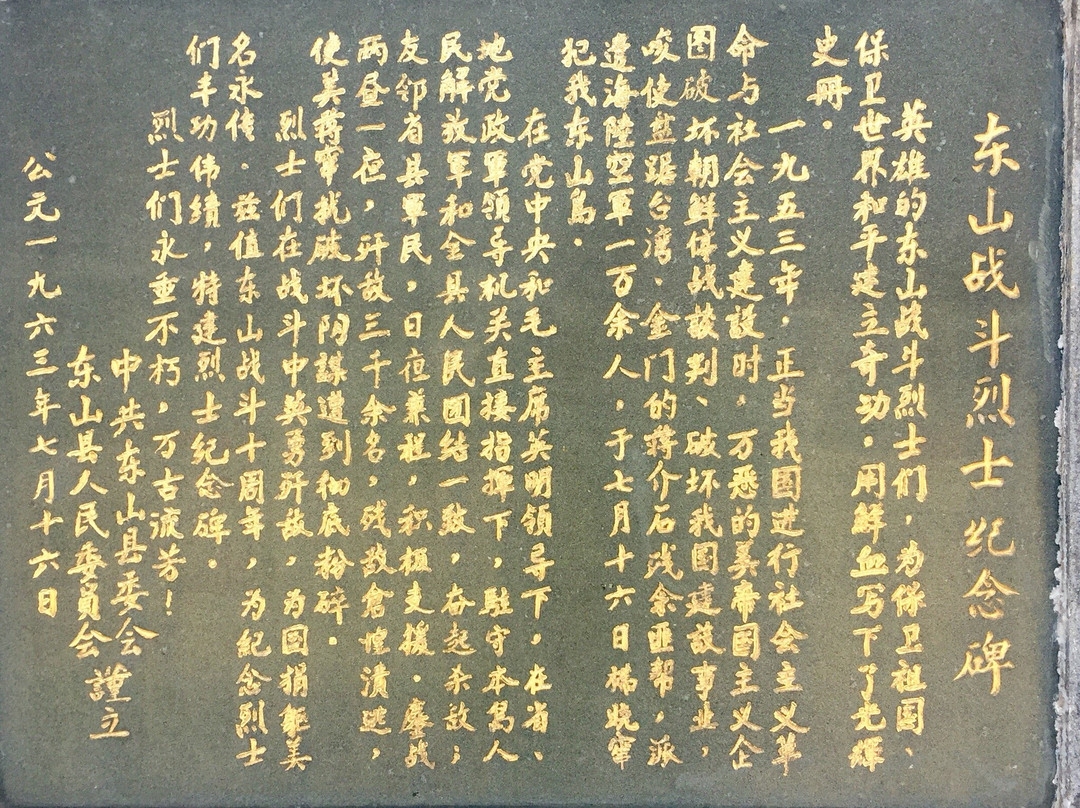 东山战斗烈士纪念碑
英雄的东山战斗烈士们，为保卫祖国、
保卫世界和平建立奇功。用鲜血写下了光辉
史册。
一九五三年，正当我国进行社会主义革
命与社会主义建设时，万恶的美帝国主义企
图破坏朝鲜停战谈判、破坏我国建设事业，
唆使盘踞台湾、金门的蒋介石残余匪帮，派
遣海陸空軍一万余人，于七月十六日拂晓窜
犯我东山岛。
在党中央和毛主席英明领导下，在省、
地党政軍领导机关直接指揮下，駐守本岛人
民解放軍和全县人民团结一致，奋起杀敌；
友邻省县軍民，日夜兼程，积极支援。鏖战
两昼一夜，歼敌三千余名，残敌倉惶溃逃，
使美蒋窜扰破坏阴謀遭到彻底粉碎。
烈士们在战斗中英勇歼敌，为国捐躯美
名永传。兹值东山战斗十周年，为纪念烈士
们丰功伟绩，特建烈士纪念碑。
烈士们永垂不朽，万古流芳！
中共东山县委会
东山县人民委员会
謹立
公元一九六三年七月十六日